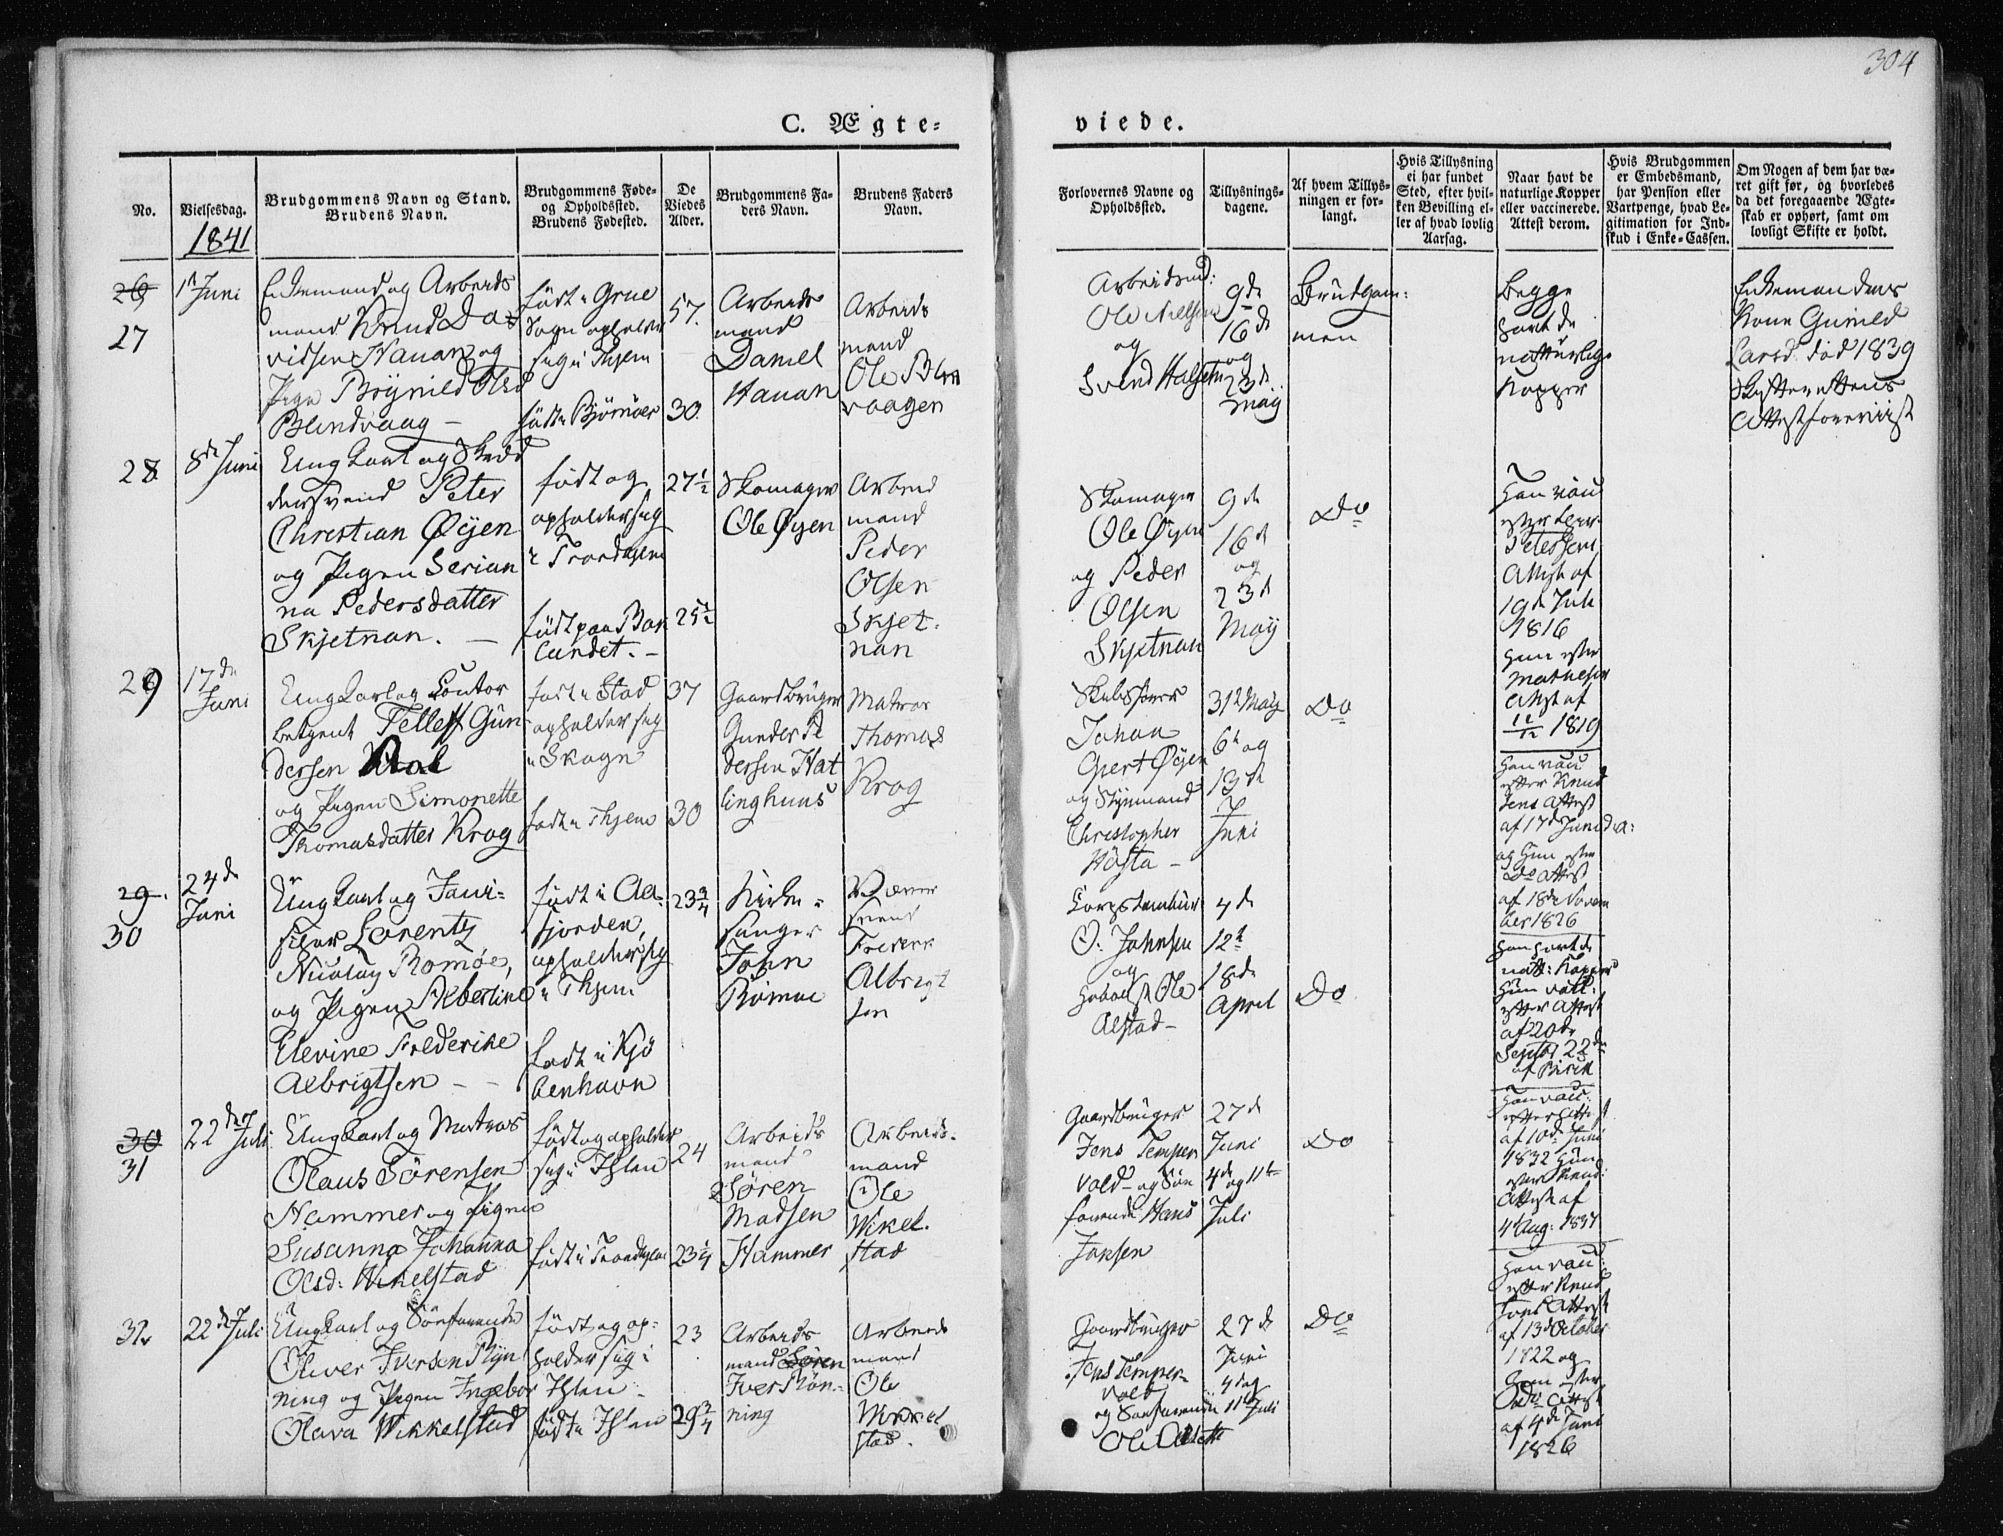 304
C. Ægte=
viede.
No.
Vielsesdag.
1841
Brudgommens Navn og Stand.
Brudens Navn.
Brudgommens Føde-
og Opholdssted.
Brudens Fødested.
De
Viedes
Alder.
Brudgommens Fa-
ders Navn.
Brudens Faders
Navn.
Forlovernes Navne og
Opholdssted.
Tillysnings-
dagene.
Af hvem Tillys-
ningen er for-
langt.
Hvis Tillysning
ei har fundet
Sted, efter hvil-
ken Bevilling el-
ler af hvad lovlig
Aarsag.
Naar havt de
naturlige Kopper
eller vaccinerede.
Attest derom.
Hvis Brudgommen
er Embedsmand,
har Pension eller
Vartpenge, hvad Le-
gitimation for Ind-
skud i Enke-Cassen.
Om Nogen af dem har væ-
ret gift før, og hvorledes
da det foregaaende Ægte-
skab er ophørt, samt om
lovligt Skifte er holdt.
26
27
1st Juni
Enkemand og Arbeids
mand Knud Da=
vidsen Hanan og
Pige Brynild Olsd
Blindvaag -
født i Grue
Sogn opholder
sig i Thjem
født i Bjørnør
57.
30.
Arbeids
mand
Daniel
Hanan
Arbeids
mand
Ole Blin
vaagen
Arbeidsmd:
Ole Nielsen
og
Svend Halsetn
9de
16de
og
23de
Maij
Brudgom=
men
Begge
havt de
naturlige
Kopper
Enkemandens
Kone Gunild
Larsd. død 1839
Skifterettens
Attest foreviist
28
8de Juni
Ungkarl og Skræd
dersvend Peter
Christian Øyen
og Pigen Serian
na Pedersdatter
Skjetnan. -
født og
opholder sig
i Trondhjem
født paa Bak
landet. -
27½
25½
Skomager
Ole Øyen
Arbeid
mand
Peder
Olsen
Skjet-
nan
Skomager
Ole Øyen
og Peder
Olsen
Skjetnan
9de
16de
og
23de
Maij
Do
Han vac:
efter
Petersens
Attest af
19de Juli
1816
Hun efter
Attest af
1819
29
17de
Juni
Ungkarl og Contor
betjent Tellef Gun
dersen
og Pigen Simonette
Thomasdatter Krog
født i Stod
opholder sig
i Skogn
født i Thjem
37
30
Gaardbruger
Gunder Pe
dersen Hat
linghuus
Matros
Thomas
Krog
Skibsfører
Johan
Giert Øyen
og Styrmand
Christopher
Høsta -
31te May
6te og
13de
Juni
Do
Han vac:
efter Knud
Jens Attest
af 17de Juni
og Hun efter
Do Attest
af 18de Novem
ber 1826
29.
30
24de
Juni
Ungkarl og Jani-
tshar Lorentz
Nicolay Romøe,
og Pigen Albertine
Elevine Frederike
Albrigtsen - -
født i Aa-
fjorden,
opholder sig
i Thjem
født i Kjø
benhavn
23¾
Kirke-
sanger
John
Romøe
Væver
svend
Frederik
Albrigt
sen
Corpstambur
O. Johnsen
og
Hoboist Ole
Alstad -
4de
12te
18de
April
Do
Han havt de
nat: Kopper
Hun vac:
efter Attest
af 20de
Septbr
30
31
22de Juli
Ungkarl og Matros
Olaus Sørensen
Hammer og Pigen
Susanna Johanna
Olsd: Wikelstad
født og opholder
sig i Ihlen
født i Trondhjem
24
23¼
Arbeids
mand
Søren
Madsen
Hammer
Arbeids-
mand
Ole
Wikel-
stad
Gaardbruger
Jens Temper
vold - og Søe
farende Hans
Jansen
27de
Juni
4de og 11te
Juli
Do
Han vac:
efter Attest
af 10de Juni
1832 Hun
efter
Attest af
4 Aug:
32
22de Juli
Ungkarl og Søefarende
Oliver Iversen Røn
ning og Pigen Ingebor
Olava Wikkelstad
født og op-
holder sig i
Ihlen -
født i Ihlen
23
29¾
Arbeids
mand Søren
Iver Røn-
ning
Arbeids
mand
Ole
Wikkel
stad.
Gaardbruger
Jens Temper-
vold
og Søefarende
Ole
27de
Juni
4de og
11te Juli
Do
Han vac:
efter Knud
Jens Attest
af 13de October
1822 og
Hun efter
Attest
af 4de Juni
1826